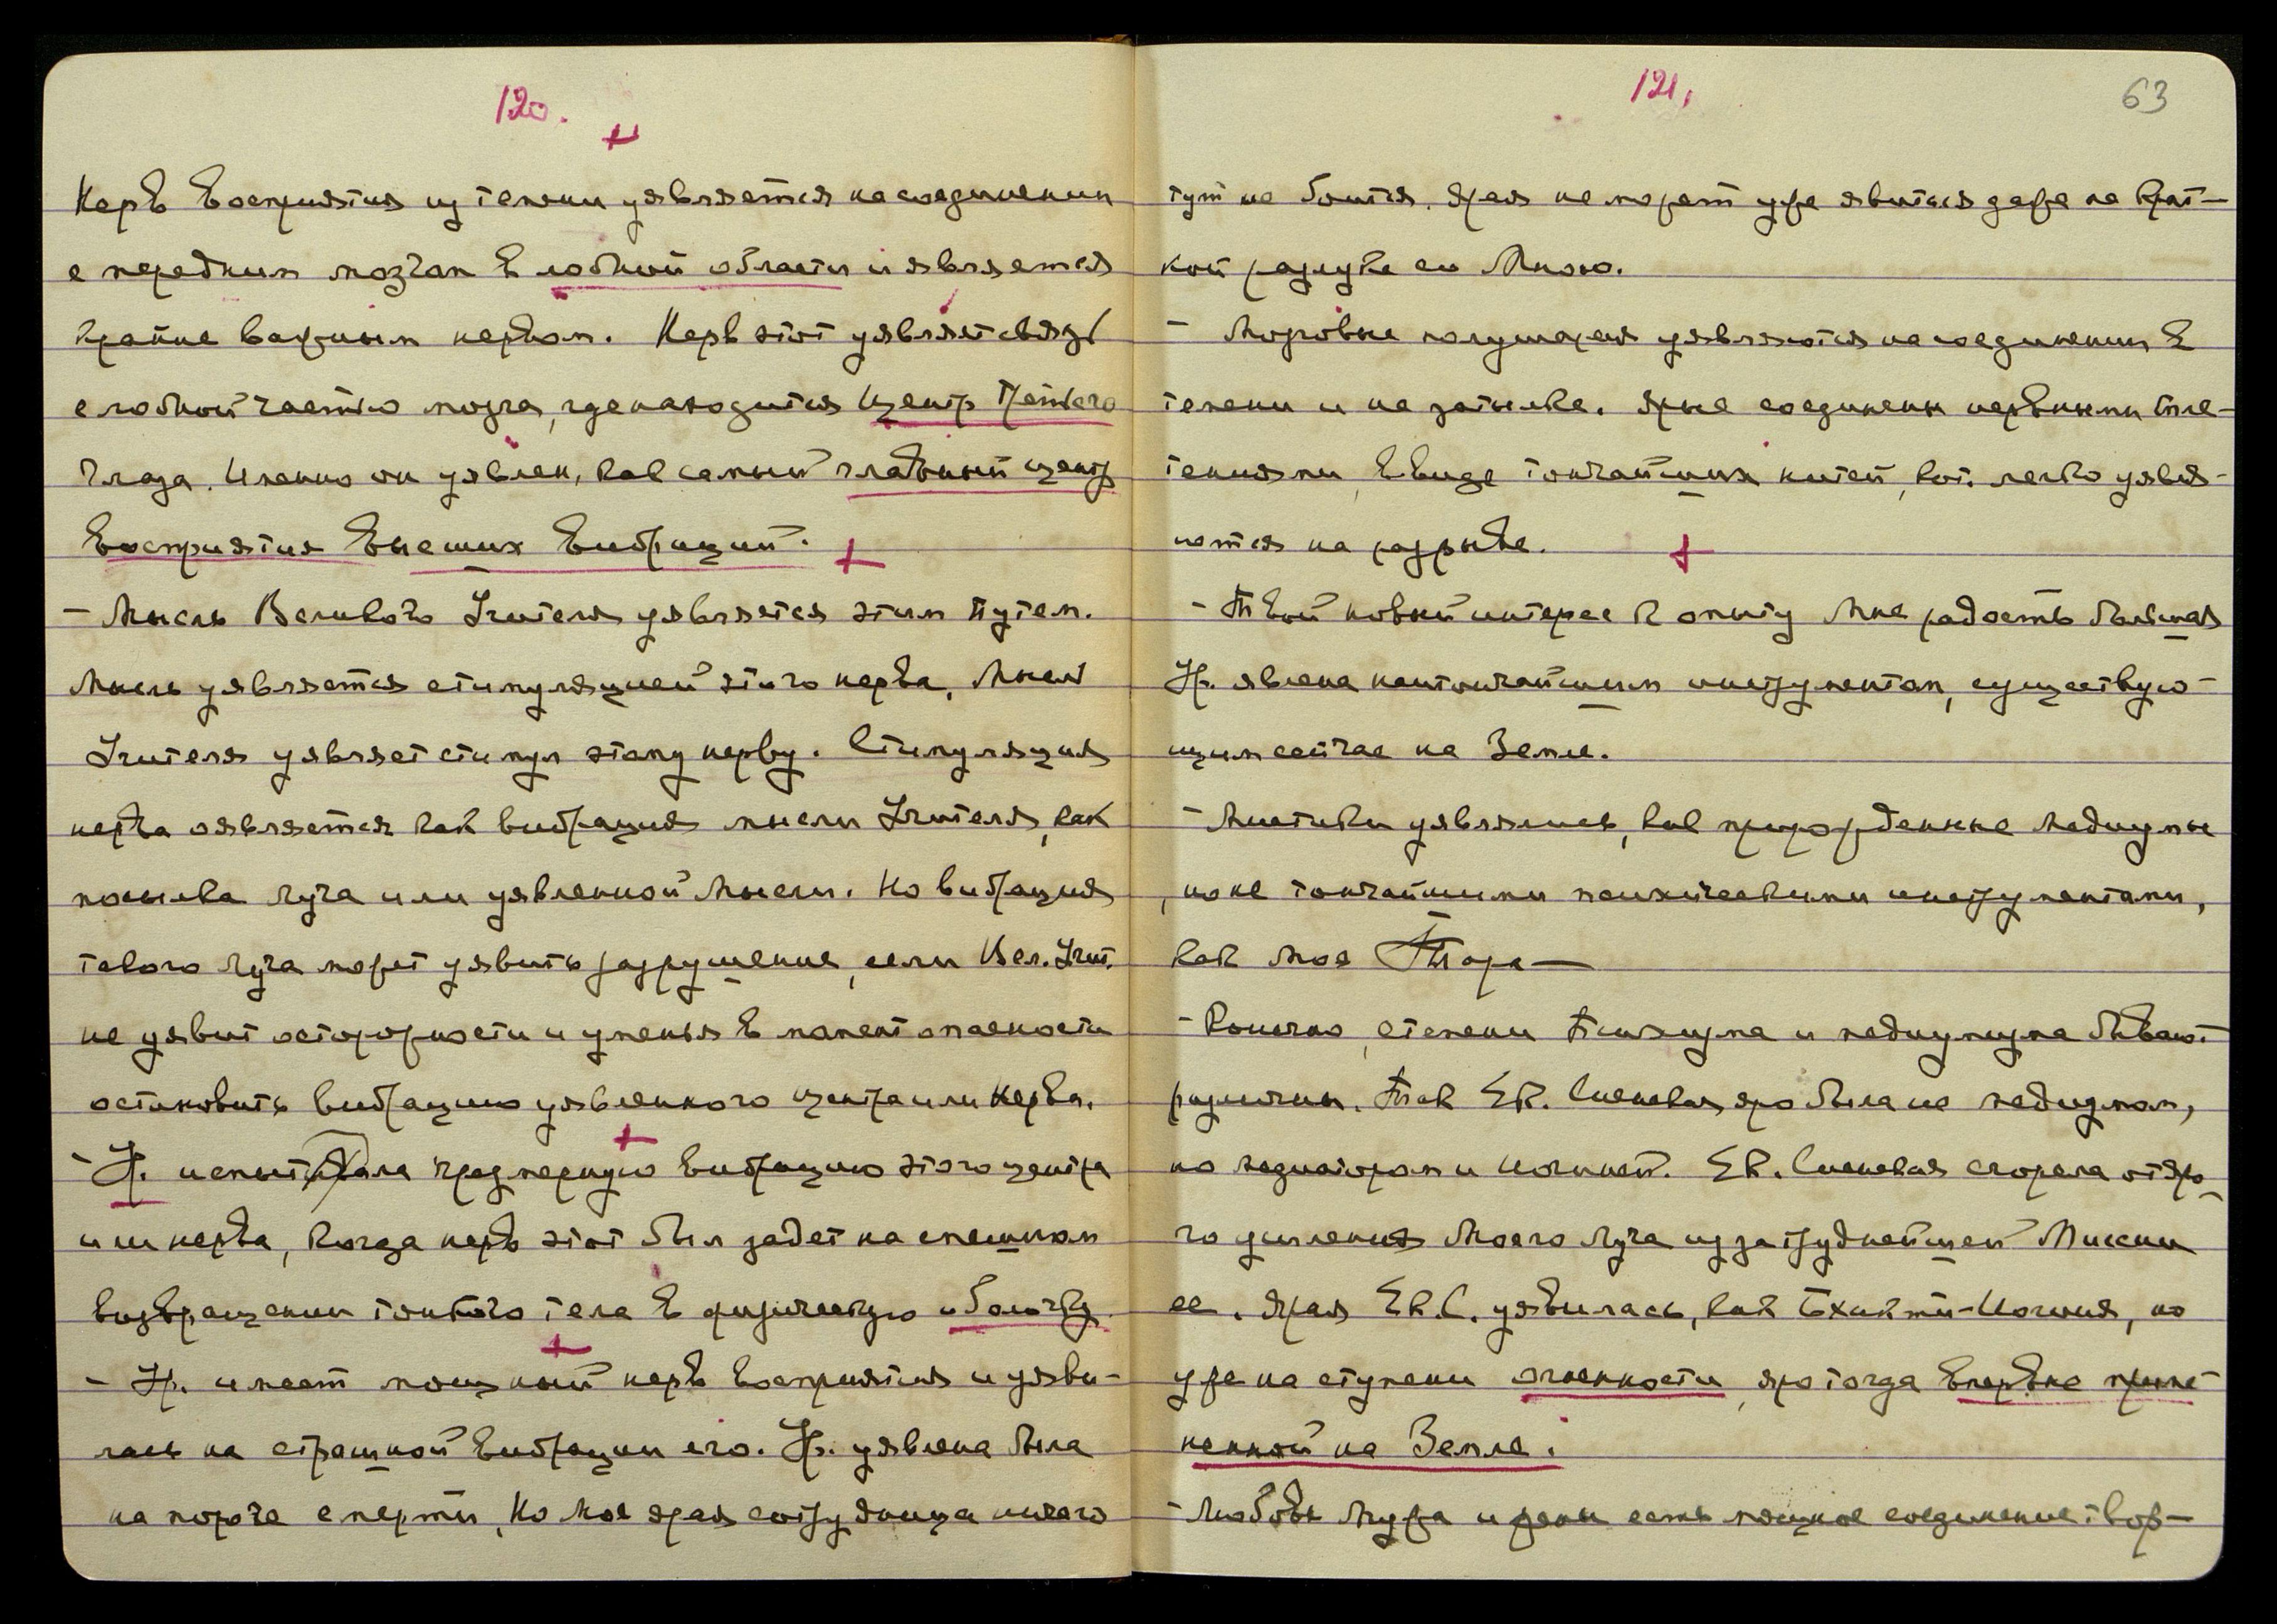 120.
Нерв восприятия из темени уявляется на соединении
с передним мозгом в лобной области и является
крайне важным нервом. Нерв этот уявляет связь
с лобной частью мозга, где находится Центр Третьего
Глаза. Именно он уявлен, как самый главный центр
восприятия Высших Вибраций.
- Мысль Великого Учителя уявляется этим путем.
Мысль уявляется стимуляцией этого нерва. Мысль
Учителя уявляет стимул этому нерву. Стимуляция
нерва оявляется как вибрация мысли Учителя, как
посылка луча или уявленной Мысли. Но вибрация
такого луча может уявить разрушение, если Вел. Учит.
не уявит осторожности и уменья в момент опасности
остановить вибрацию уявленного центра или нерва.
- Ур. испытала чрезмерную вибрацию этого центра
или нерва, когда нерв этот был задет на спешном
возвращении тонкого тела в физическую оболочку.
- Ур. имеет мощный нерв восприятия и уяви-
лась на страшной вибрации его. Ур. уявлена была
на пороге смерти, Но Моя ярая сотрудница ничего
121. 63
тут не боится. Ярая не может уже явиться даже на крат-
кой разлуке со Мною.
- Мозговые полушария уявляются на соединении в
темени и на затылке. Ярые соединены нервными спле-
тениями, в виде тончайших нитей, кот. легко уявля-
ются на разрыве.
- Твой новый интерес к опыту Мне радость большая
Ур. явлена наитончайшим инструментом, существую-
щим сейчас на Земле.
- Мистики уявлялись, как прирожденные медиумы
, но не тончайшими психическими инструментами,
как Моя Тара —
- Конечно, степени психизма и медиумизма бывают
различны. Так Ек. Сиенская, яро была не медиумом,
но медиатором и Иогиней. Ек. Сиенская сгорела от яро-
го усиления Моего Луча из за труднейшей Миссии
ее. Ярая Ек. С. уявилась, как Бхакти-Иогиня, но
уже на ступени огненности, яро тогда впервые приме-
ненной на Земле.
- Любовь Мужа и жены есть мощное соединение твор-